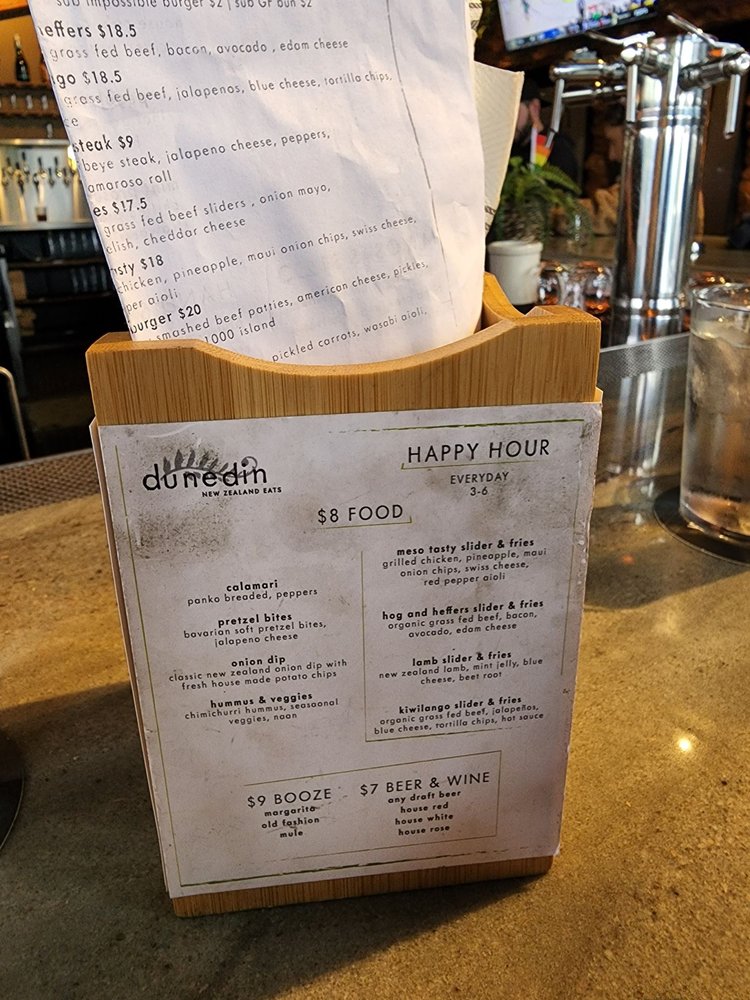 sub impossible burger $2 | sub GF bun $2
effers $18.5
grass fed beef, bacon, avocado , edam cheese
go $18.5
grass fed beef, jalapenos, blue cheese, tortilla chips,
steak $9
beye steak, jalapeno cheese, peppers,
amaroso roll
es $17.5
grass fed beef sliders , onion mayo,
lish, cheddar cheese
sty $18
chicken, pineapple, maui onion chips, swiss cheese,
per aioli
burger $20
smashed beef patties, american cheese, pickles,
1000 island
pickled carrots, wasabi aioli,
dunedin
NEW ZEALAND EATS
HAPPY HOUR
EVERYDAY
3-6
$8 FOOD
calamari
panko breaded, peppers
pretzel bites
bavarian soft pretzel bites,
jalapeno cheese
onion dip
classic new zealand onion dip with
fresh house made potato chips
hummus & veggies
chimichurri hummus, seasaonal
veggies, naan
meso tasty slider & fries
grilled chicken, pineapple, maui
onion chips, swiss cheese,
red pepper aioli
hog and heffers slider & fries
organic grass fed beef, bacon,
avocado, edam cheese
lamb slider & fries
new zealand lamb, mint jelly, blue
cheese, beet root
kiwilango slider & fries
organic grass fed beef, jalapeños,
blue cheese, tortilla chips, hot sauce
$9 BOOZE
margarita
old fashion
mule
$7 BEER & WINE
any draft beer
house red
house white
house rose